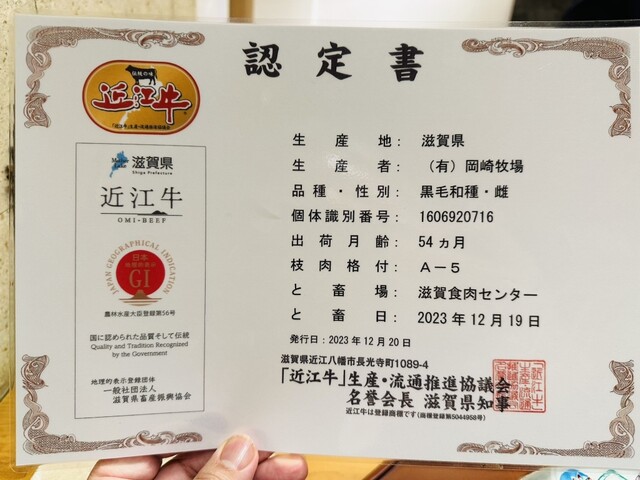 認定書
伝統の味
近江牛
「近江牛」生産・流通推進協議会
Mother Lake
滋賀県
Shiga Prefecture
近江牛
OMI-BEEF
JAPAN GEOGRAPHICAL INDICATION
日本
地理的表示
GI
農林水産大臣登録第56号
国に認められた品質そして伝統
Quality and Tradition Recognized
by the Government
地理的表示登録団体
一般社団法人
滋賀県畜産振興協会
生産地: 滋賀県
生産者: (有)岡崎牧場
品種・性別: 黒毛和種・雌
個体識別番号: 1606920716
出荷月齢: 54ヵ月
枝肉格付: A-5
と畜場: 滋賀食肉センター
と畜日: 2023年12月19日
発行日:2023年12月20日
滋賀県近江八幡市長光寺町1089-4
「近江牛」生産・流通推進協議会
名誉会長 滋賀県知事
近江牛は登録商標です(商標登録第5044958号)